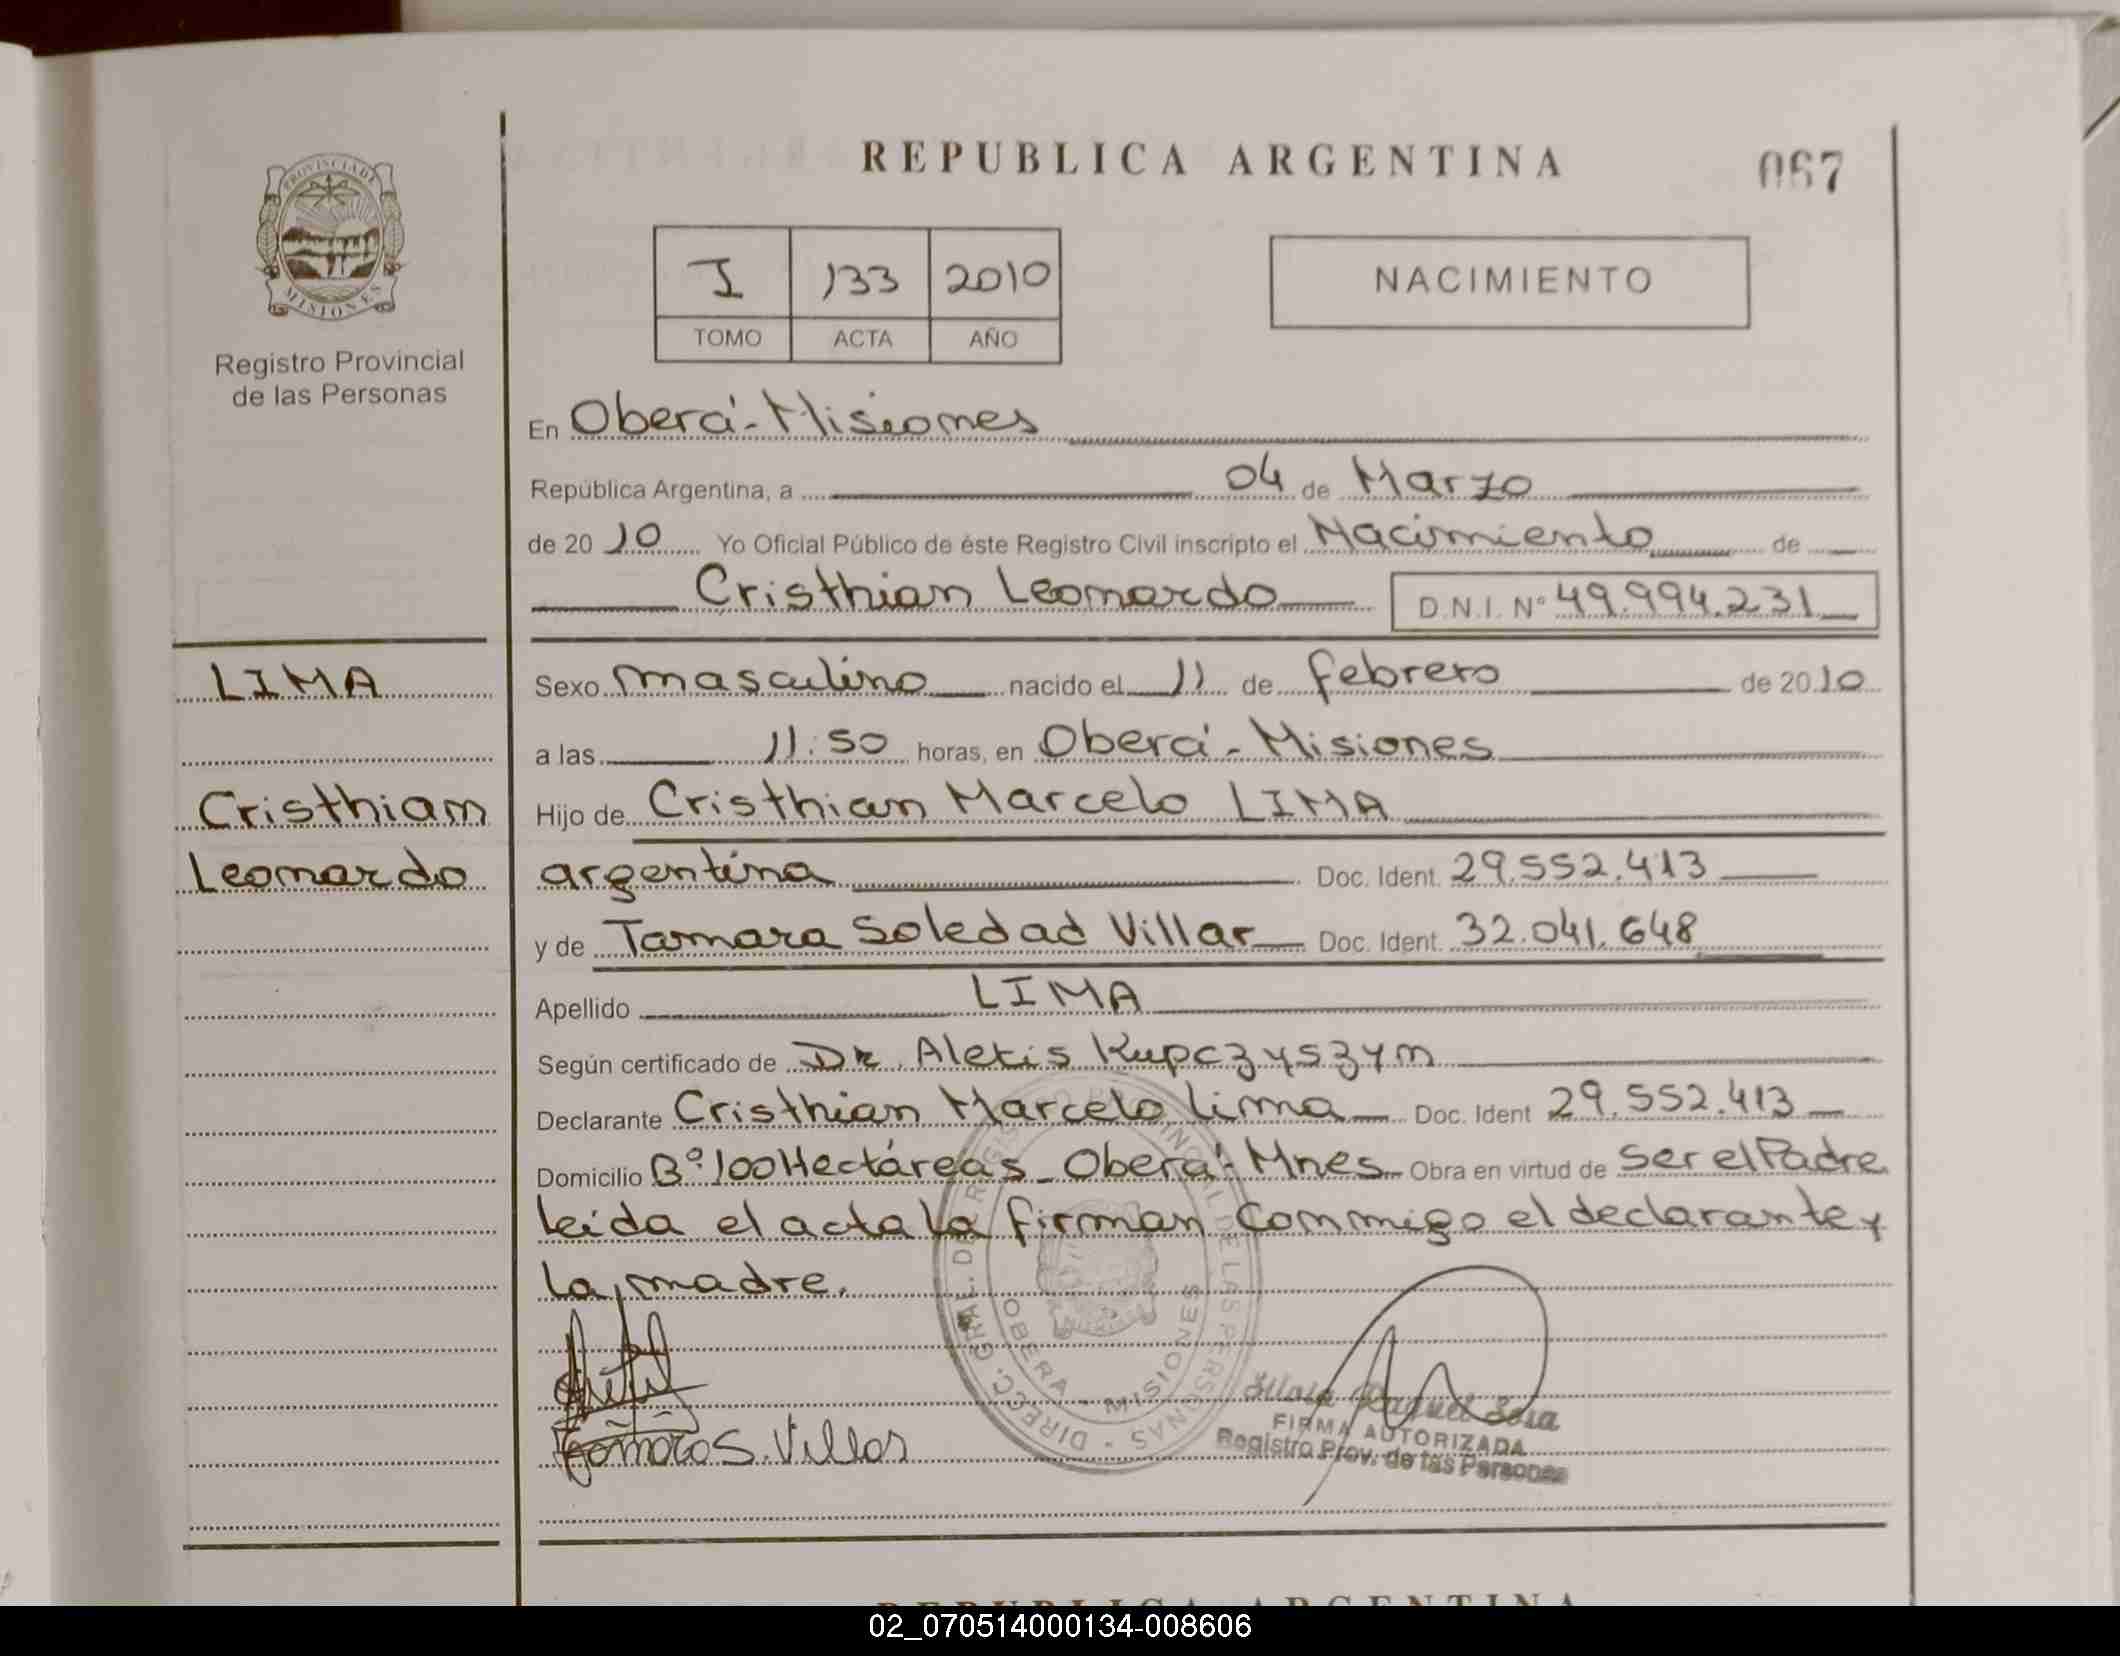 REPUBLICA ARGENTINA
067
PROVINCIA DE
MISIONES
Registro Provincial
de las Personas
I 133 2010
TOMO ACTA AÑO
NACIMIENTO
En Oberá - Misiones
República Argentina, a 04 de Marzo
de 2010 Yo Oficial Público de éste Registro Civil inscripto el Nacimiento de
Cristhian Leonardo D.N.I. Nº 49.994.231
LIMA
Cristhian
Leonardo
Sexo masculino nacido el 11 de febrero de 2010
a las 11:50 horas, en Oberá - Misiones
Hijo de Cristhian Marcelo LIMA
argentina Doc. Ident. 29.552.413
y de Tamara Soledad Villar Doc. Ident. 32.041.648
Apellido LIMA
Según certificado de Dr. Alexis Kupczyszyn
Declarante Cristhian Marcelo Lima Doc. Ident 29.552.413
Domicilio Bº 100 Hectáreas - Oberá - Mnes. Obra en virtud de ser el Padre
leida el acta la firman conmigo el declarante y
la madre.
DIRECC. GRAL. DEL REGISTRO PROVINCIAL DE LAS PERSONAS
OBERA - MISIONES
Tamara S. Villar
Raquel Sosa
FIRMA AUTORIZADA
Registro Prov. de las Personas
REPUBLICA ARGENTINA
02_070514000134-008606